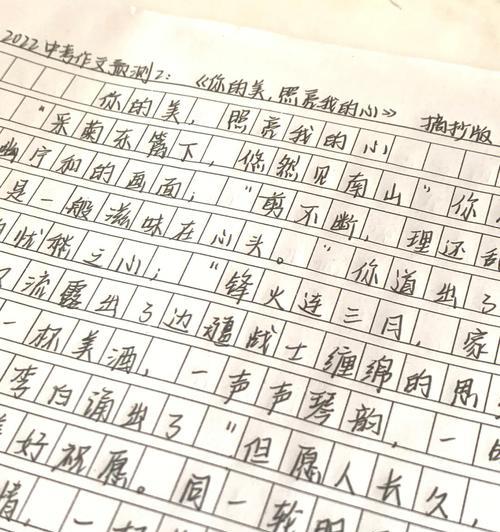 2022中考作文预测2：《你的美，照亮我的心》 摘抄版
你的美，照亮我的心
“采菊东篱下，悠然见南山”你
幽宁和的画面；“剪不断，理还乱
是一般滋味在心头。”你道出了
忧愁之心；“锋火连三月，家
流露出了边疆战士缠绵的思
一杯美酒，一声声琴韵，一
李白涌出了“但愿人长久，
美好祝愿。同一轮明
情，一杯